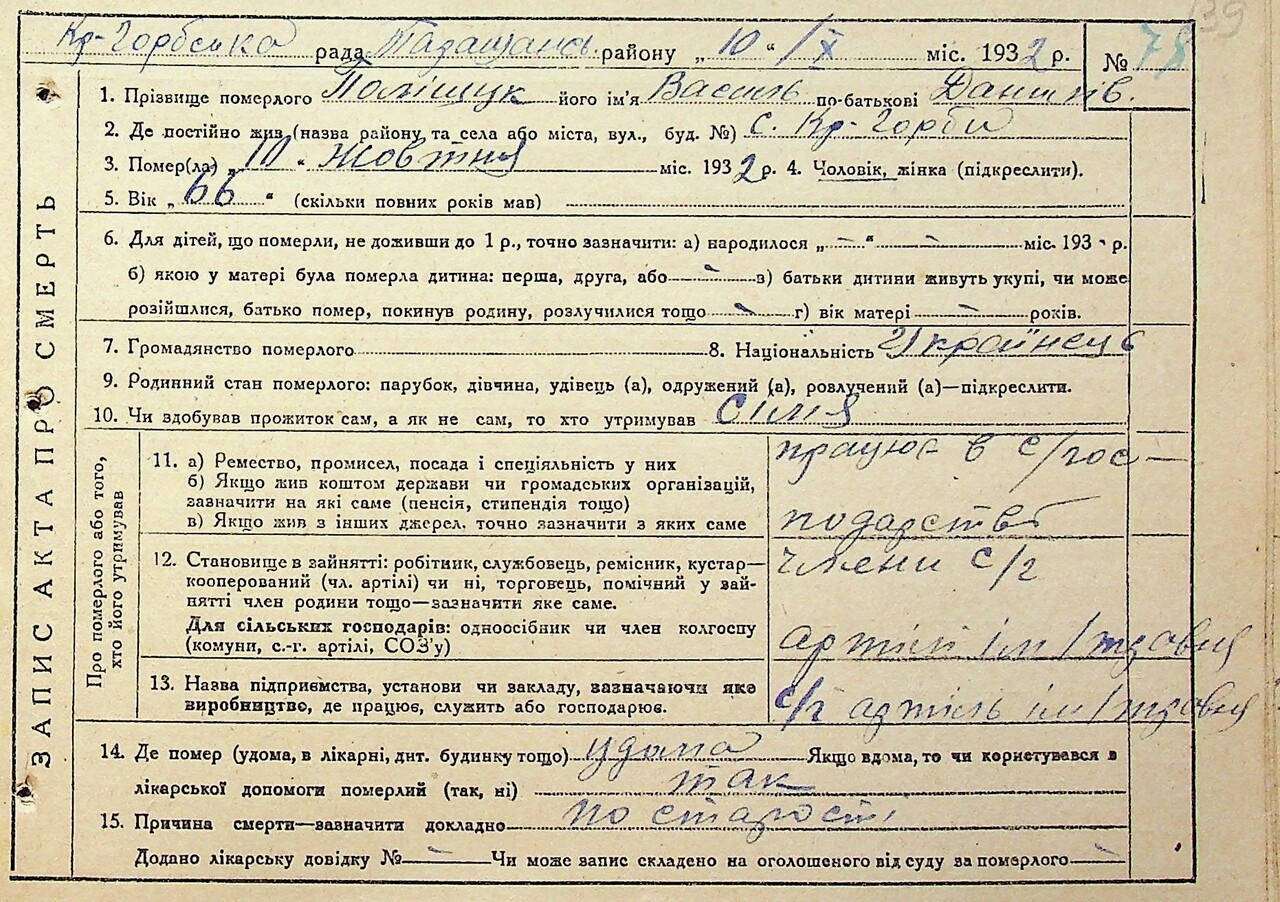 139
Кр-Горбська рада Таращанс. району „ 10 “ /X міс. 1932 р. № 78
1. Прізвище померлого Поліщук його ім'я Василь по-батькові Данилів.
2. Де постійно жив (назва району, та села або міста, вул., буд. №) с. Кр-Горби
3. Помер(ла) „ 10 “ жовтня міс. 1932 р. 4. Чоловік, жінка (підкреслити).
5. Вік „ 66 “ (скільки повних років мав)
6. Для дітей, що померли, не доживши до 1 р., точно зазначити: а) народилося „ – “ – міс. 193 р.
б) якою у матері була померла дитина: перша, друга, або – в) батьки дитини живуть укупі, чи може
розійшлися, батько помер, покинув родину, розлучилися тощо – г) вік матері – років.
7. Громадянство померлого 8. Національність Українець
9. Родинний стан померлого: парубок, дівчина, удівець (а), одружений (а), розлучений (а)—підкреслити.
10. Чи здобував прожиток сам, а як не сам, то хто утримував Сімя
ЗАПИС АКТА ПРО СМЕРТЬ
Про померлого або того,
хто його утримував
11. а) Ремество, промисел, посада і спеціяльність у них
б) Якщо жив коштом держави чи громадських організацій,
зазначити на які саме (пенсія, стипендія тощо)
в) Якщо жив з інших джерел, точно зазначити з яких саме
працює в с/гос–
подарстві
12. Становище в зайнятті: робітник, службовець, ремісник, кустар—
кооперований (чл. артілі) чи ні, торговець, помічний у зай-
нятті член родини тощо—зазначити яке саме.
Для сільських господарів: одноосібник чи член колгоспу
(комуни, с.-г. артілі, СОЗ'у)
члени с/г
артілі ім 1 травня
13. Назва підприємства, установи чи закладу, зазначаючи яке
виробництво, де працює, служить або господарює.
с/г артіль ім 1 травня
14. Де помер (удома, в лікарні, дит. будинку тощо) удома Якщо вдома, то чи користувався в
лікарської допомоги померлий (так, ні) так
15. Причина смерти—зазначити докладно по старості
Додано лікарську довідку № – Чи може запис складено на оголошеного від суду за померлого –